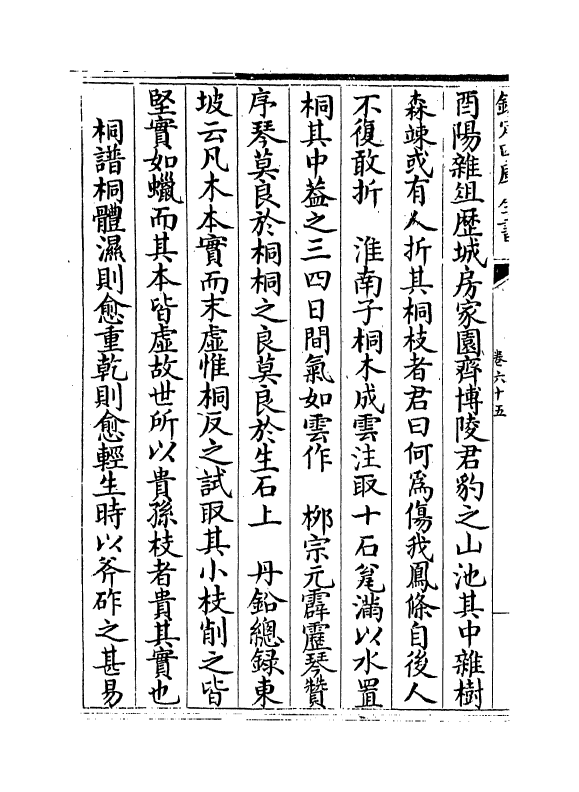 欽定四庫全書
卷六十五
酉陽雜俎歴城房家園齊博陵君豹之山池其中雜樹
森竦或有人折其桐枝者君曰何為傷我鳳條自後人
不復敢折　淮南子桐木成雲注取十石瓮滿以水置
桐其中葢之三四日間氣如雲作　栁宗元霹靂琴贊
序琴莫良於桐桐之良莫良於生石上　丹鉛總録東
坡云凡木本實而末虛惟桐反之試取其小枝削之皆
堅實如蠟而其本皆虛故世所以貴孫枝者貴其實也
桐譜桐體濕則愈重乾則愈輕生時以斧斫之甚易